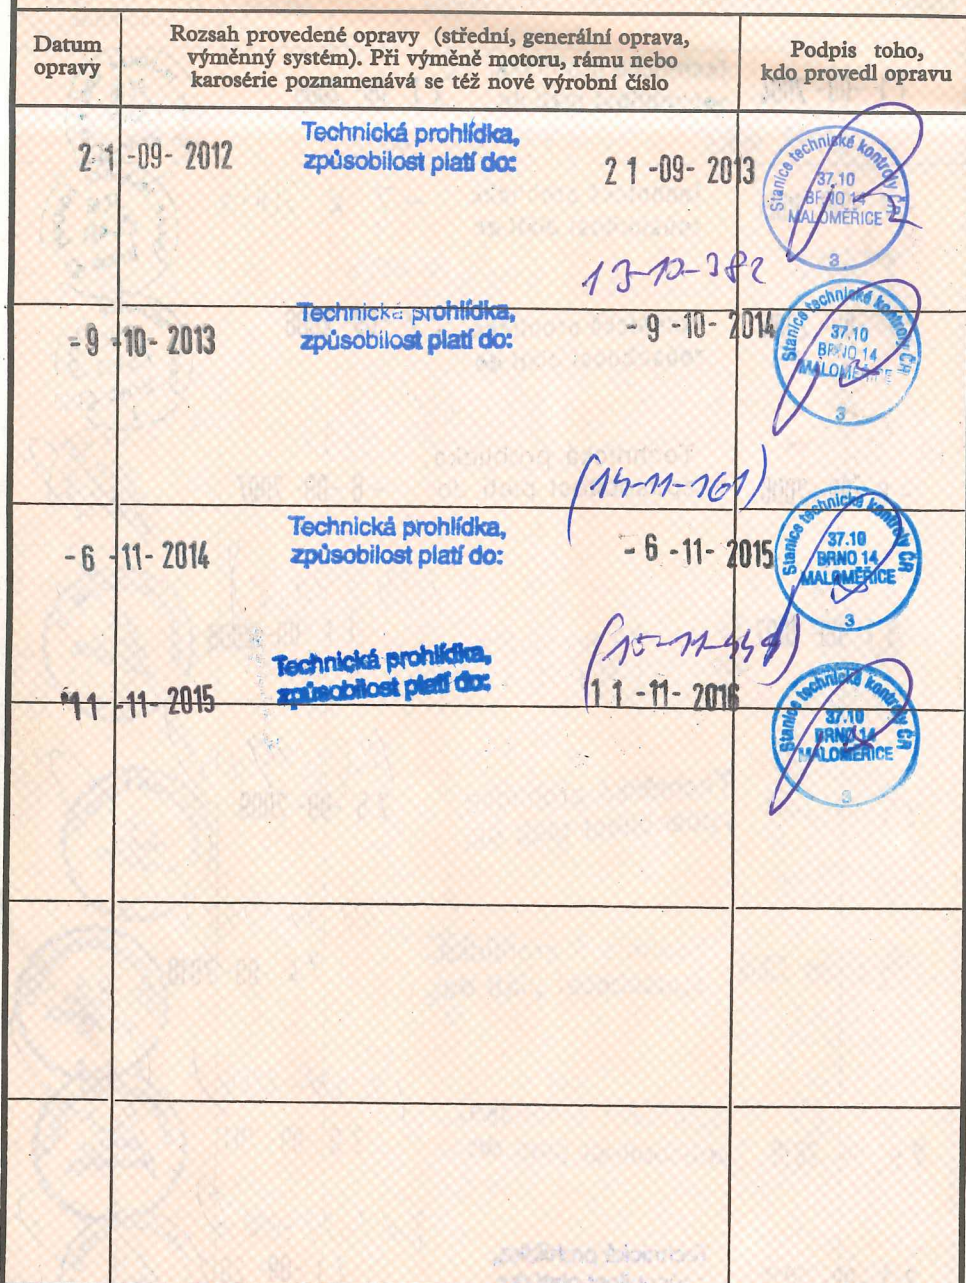 Datum
opravy
Rozsah provedené opravy (střední, generální oprava,
výměnný systém). Při výměně motoru, rámu nebo
karosérie poznamenává se též nové výrobní číslo
Podpis toho,
kdo provedl opravu
21-09-2012
Technická prohlídka,
způsobilost platí do:
21-09-2013
Stanice technické kontroly ČR
37.10
BRNO 14
MALOMĚŘICE
3
13-10-382
-9-10-2013
Technická prohlídka,
způsobilost platí do:
-9-10-2014
Stanice technické kontroly ČR
37.10
BRNO 14
MALOMĚŘICE
3
(14-11-161)
-6-11-2014
Technická prohlídka,
způsobilost platí do:
-6-11-2015
Stanice technické kontroly ČR
37.10
BRNO 14
MALOMĚŘICE
3
11-11-2015
Technická prohlídka,
způsobilost platí do:
11-11-2016
Stanice technické kontroly ČR
37.10
BRNO 14
MALOMĚŘICE
3